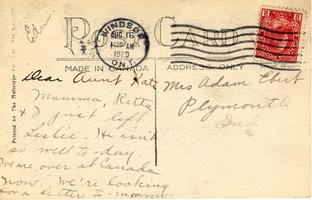 Edna
POST CARD
WINDSOR
AUG 16
12 PM
1929
ONT.
MADE IN CANADA
ADDRESS ONLY
Dear Aunt Kate
Mamma, Ritta
& I just left
Leslie. He isn't
so well to-day.
We are over at Canada
now. We're looking
for a letter to-morrow.
Mrs Adam Ebert
Plymouth
Ind